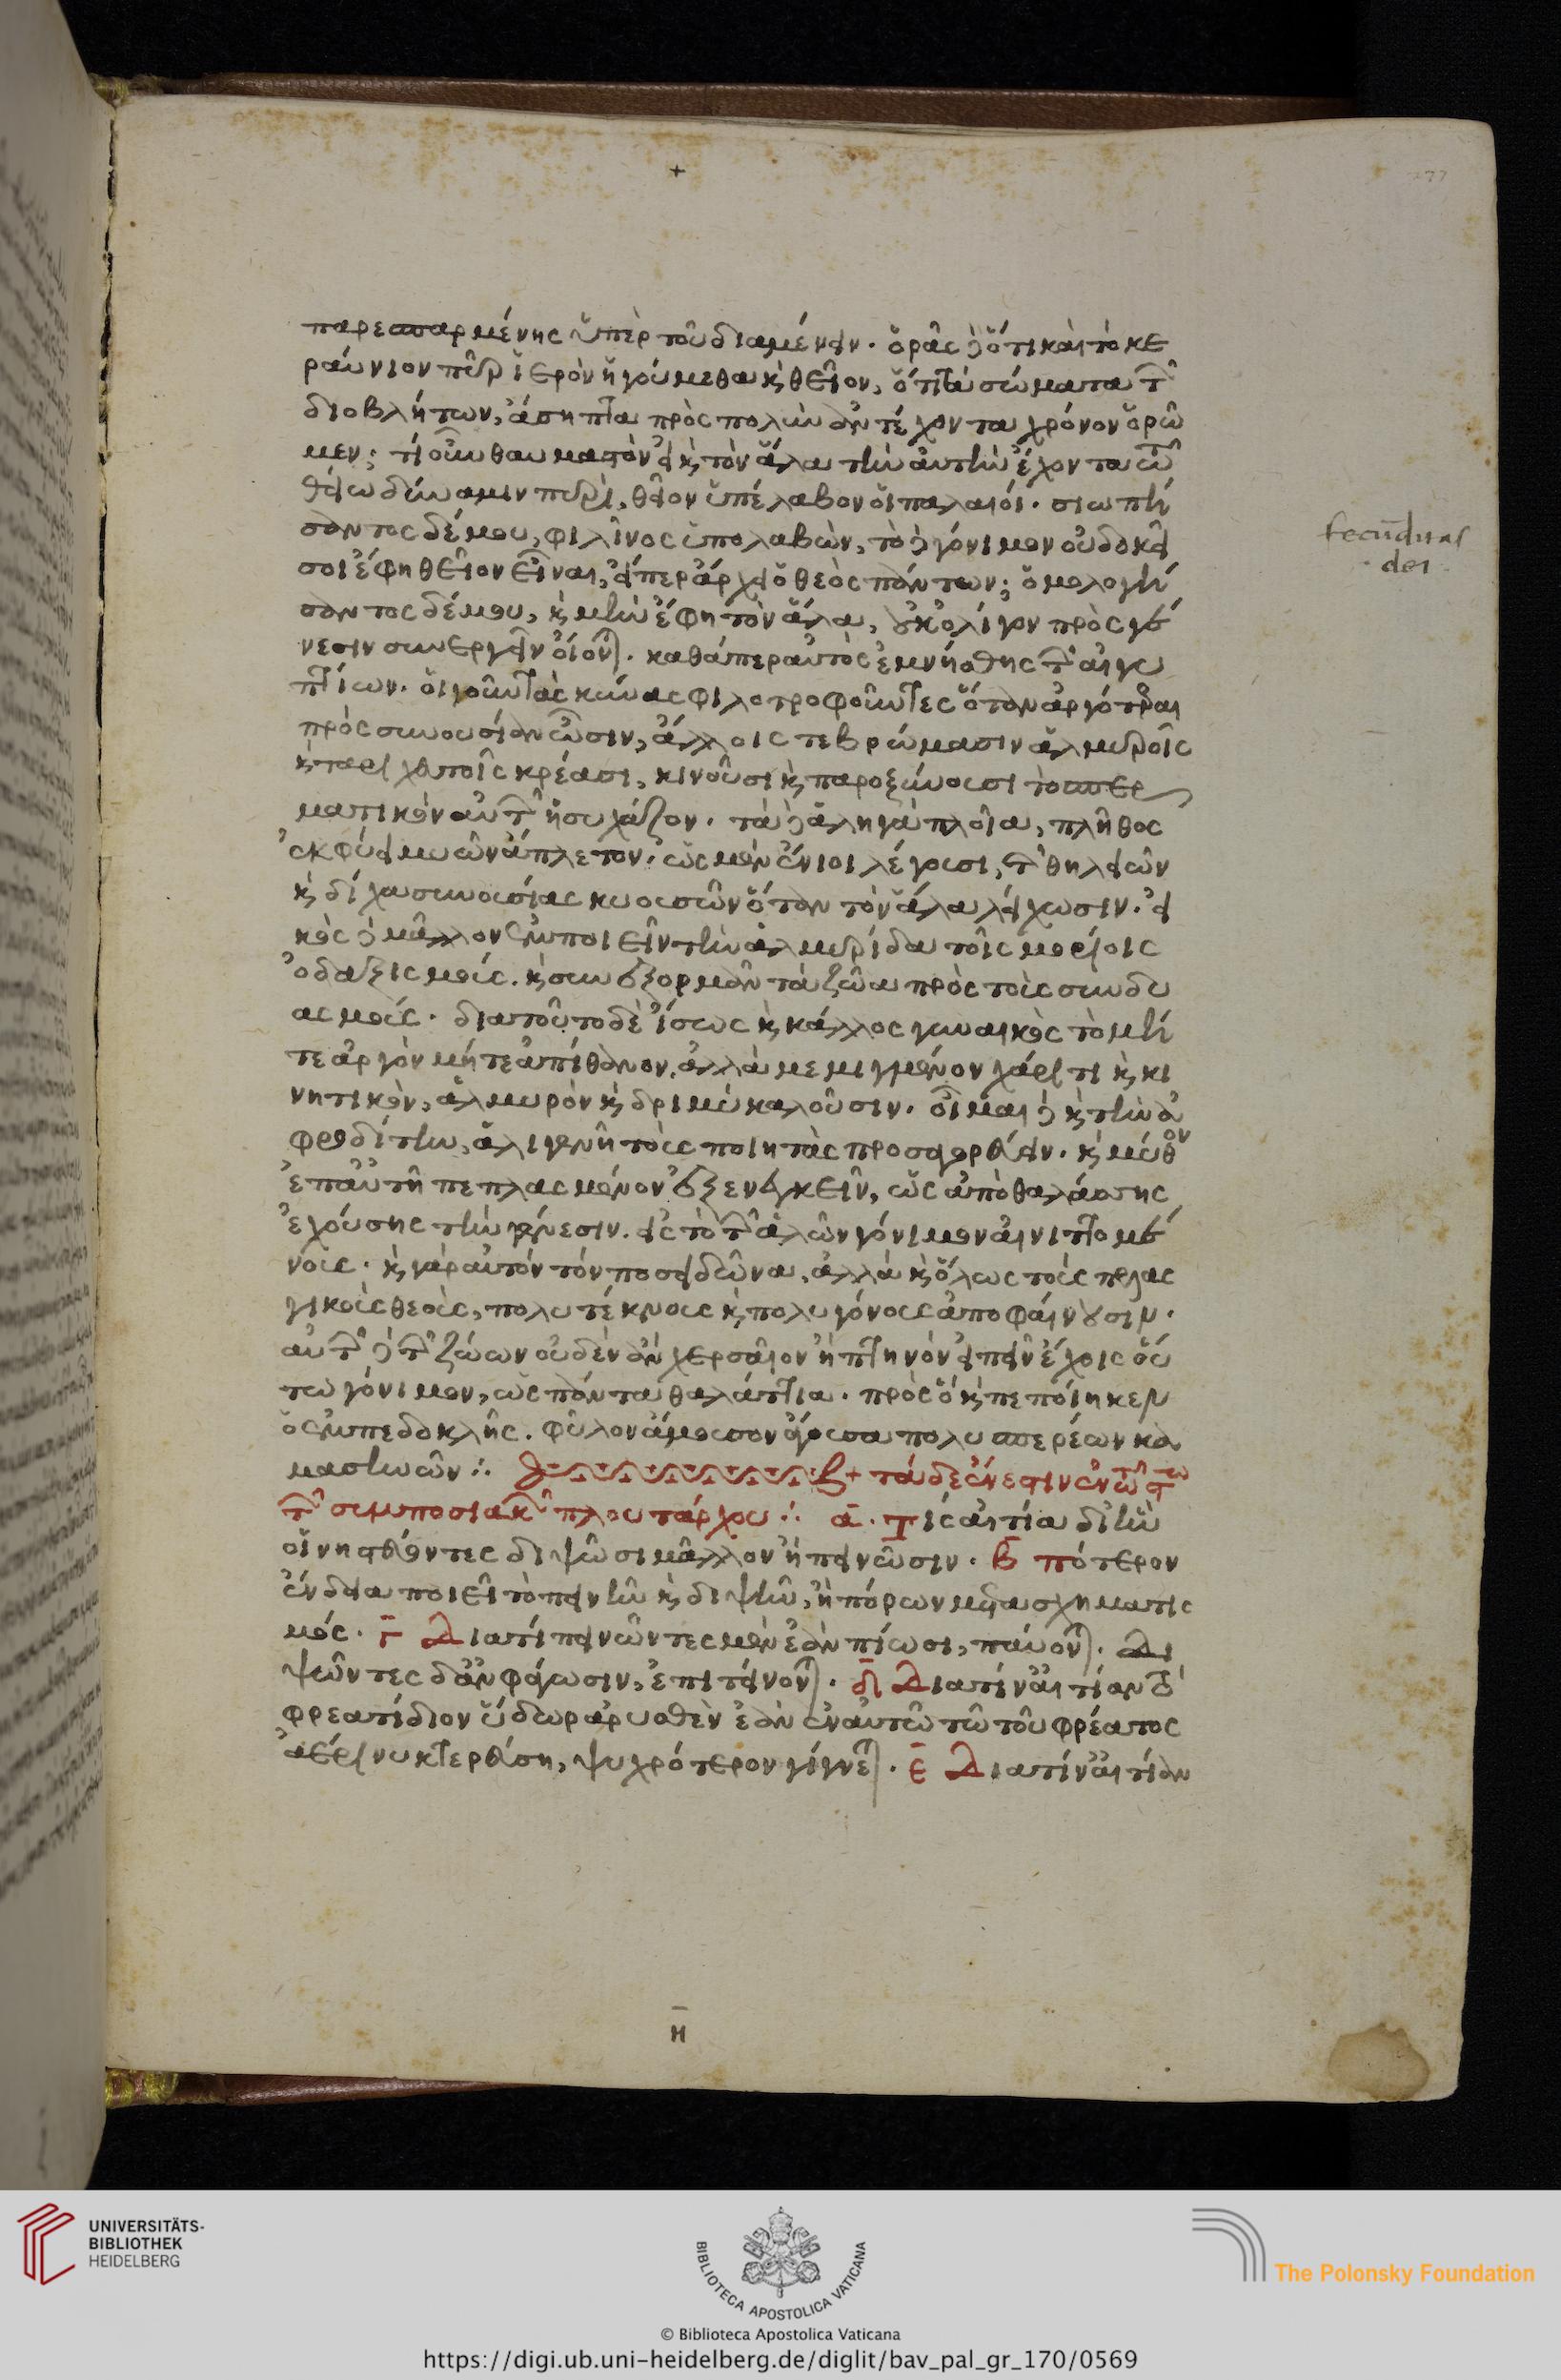 +
277
παρεσπαρμένης ὑπὲρ τοῦ διαμένειν. ὁρᾶς δ' ὅτι καὶ τὸ κε
ραύνιον πῦρ ἱερὸν ἡγούμεθα κ θεῖον, ὅτι τὰ σώματα τ
διοβλήτων, ἄσηπτα πρὸς πολὺν ἀντέχοντα χρόνον ὁρῶ
μεν; τί οὖν θαυμαστὸν εἰ κ τὸν ἅλα τὴν αὐτὴν ἔχοντα τῶ
θείω δύναμιν πυρὶ, θεῖον ὑπέλαβον οἱ παλαιοί. σιωπή
σαντος δέ μου, φιλῖνος ὑπολαβὼν, τὸ δὲ γόνιμον οὐ δοκεῖ
σοι ἔφη θεῖον εἶναι, εἴπερ ἀρχεῖ ὁ θεὸς πάντων; ὁμολογή
σαντος δέ μου, κ μὴν ἔφη τὸν ἅλα, οὐκ ὀλίγον πρὸς γέ
νεσιν συνεργεῖν οἴον. καθάπερ αὐτὸς ἐμνήσθης τ αἰγυ
πτίων. οἱ γοῦν τὰς κύνας φιλοτροφοῦντες ὅταν ἀργότεραι
πρὸς συνουσίαν ὦσιν, ἄλλοις τε βρώμασιν ἁλμυροῖς
κ ταριχευτοῖς κρέασι, κινοῦσι κ παροξύνουσι τὸ σπερ
ματικὸν αὐτ ἡσυχάζον. τὰ δὲ ἁληγὰ πλοῖα, πλῆθος
ἐκφύει μυῶν ἄπλετον. ὡς μὲν ἔνιοι λέγουσι, τ θηλειῶν
κ δίχα συνουσίας κυουσῶν ὅταν τὸν ἅλα λείχωσιν. εἰ
κὸς δὲ μᾶλλον ἐμποιεῖν τὴν ἁλμυρίδα τοῖς μορίοις
ὀδαξισμοὺς. κ συνεξορμᾶν τὰ ζῶα πρὸς τοὺς συνδυ
ασμούς. διὰ τοῦτο δὲ ἴσως κ κάλλος γυναικὸς τὸ μή
τε ἀργὸν μήτε ἀπίθανον, ἀλλὰ μεμιγμένον χάριτι κ κι
νητικὸν, ἁλμυρὸν κ δριμὺ καλοῦσιν. οἶμαι δὲ κ τὴν ἀ
φροδίτην, ἁλιγενῆ τοὺς ποιητὰς προσαγορεύειν. κ μῦθον
ἐπ' αὐτῆ πεπλασμένον ἐξενεγκεῖν, ὡς ἀπὸ θαλάσσης
ἐχούσης τὴν γένεσιν. εἰς τὸ τ ἁλῶν γόνιμον αἰνιττομέ
νους. κ γὰρ αὐτὸν τὸν ποσειδῶνα, ἀλλὰ κ ὅλως τοὺς πελας
γικοὺς θεοὺς, πολυτέκνους κ πολυγόνους ἀποφαίνουσιν.
αὐτ δὲ τ ζώων οὐδὲν ἂν χερσαῖον ἢ πτηνὸν εἰπεῖν ἔχοις οὕ
τω γόνιμον, ὡς πάντα θαλάττια. πρὸς ὃ κ πεποίηκεν
ὁ ἐμπεδοκλῆς. φῦλον ἄμουσον ἄγουσα πολυσπερέων κα
μασηνῶν ∴ + τάδε ἔνεστιν ἐν τῶ ςτω
τ συμποσιακ πλουτάρχου ∴ α. τίς αἰτία δι' ἣν
οἱ νηστεύοντες διψῶσι μᾶλλον ἢ πεινῶσιν. β πότερον
ἔνδεια ποιεῖ τὸ πεινῆν κ διψῆν, ἢ πόρων μετασχηματισ
μός. γ Διατί πεινῶντες μὲν ἐὰν πίωσι, παύον. Δι
ψῶντες δ' ἂν φάγωσιν, ἐπιτείνον. δ Διατίν' αἰτίαν τὸ
φρεατίδιον ὕδωρ ἀρυσθὲν ἐὰν ἐν αὐτῶ τῶ τοῦ φρέατος
ἀέρι νυκτερεύση, ψυχρότερον γίγνε. ε Διατίν' αἰτίαν
fecūditas
dei
η
UNIVERSITÄTS-
BIBLIOTHEK
HEIDELBERG
BIBLIOTECA APOSTOLICA VATICANA
The Polonsky Foundation
© Biblioteca Apostolica Vaticana
https://digi.ub.uni-heidelberg.de/diglit/bav_pal_gr_170/0569